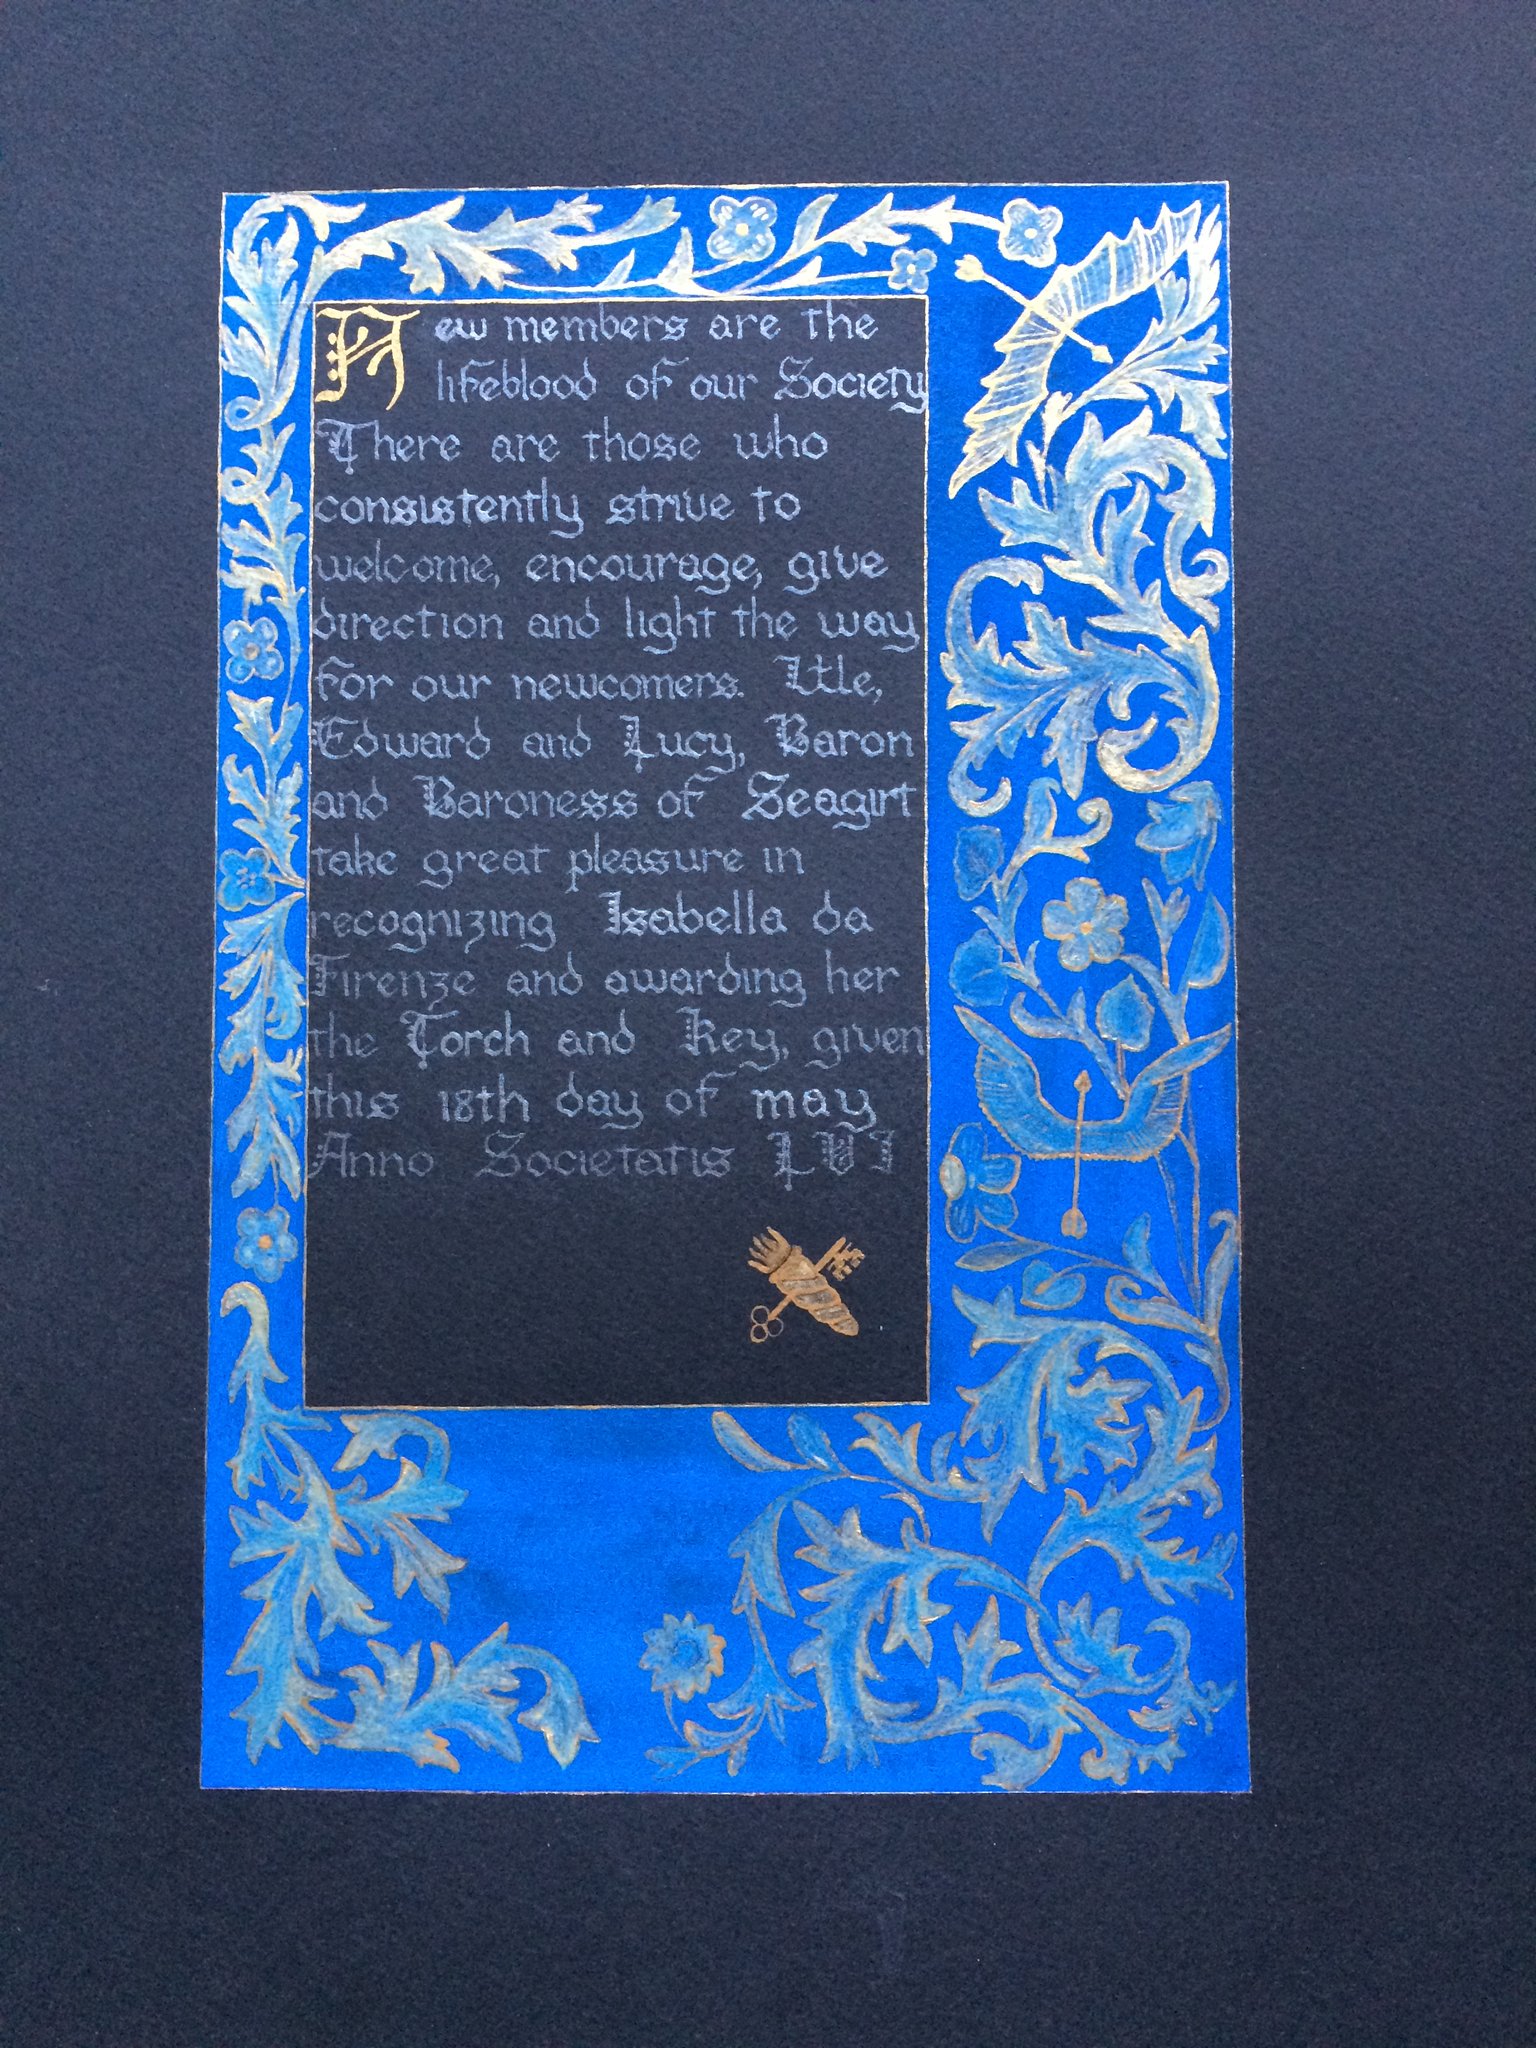 New members are the
lifeblood of our Society
There are those who
consistently strive to
welcome, encourage, give
direction and light the way
for our newcomers. We,
Edward and Lucy, Baron
and Baroness of Seagirt
take great pleasure in
recognizing Isabella da
Firenze and awarding her
the Torch and Key, given
this 18th day of may
Anno Societatis LVI